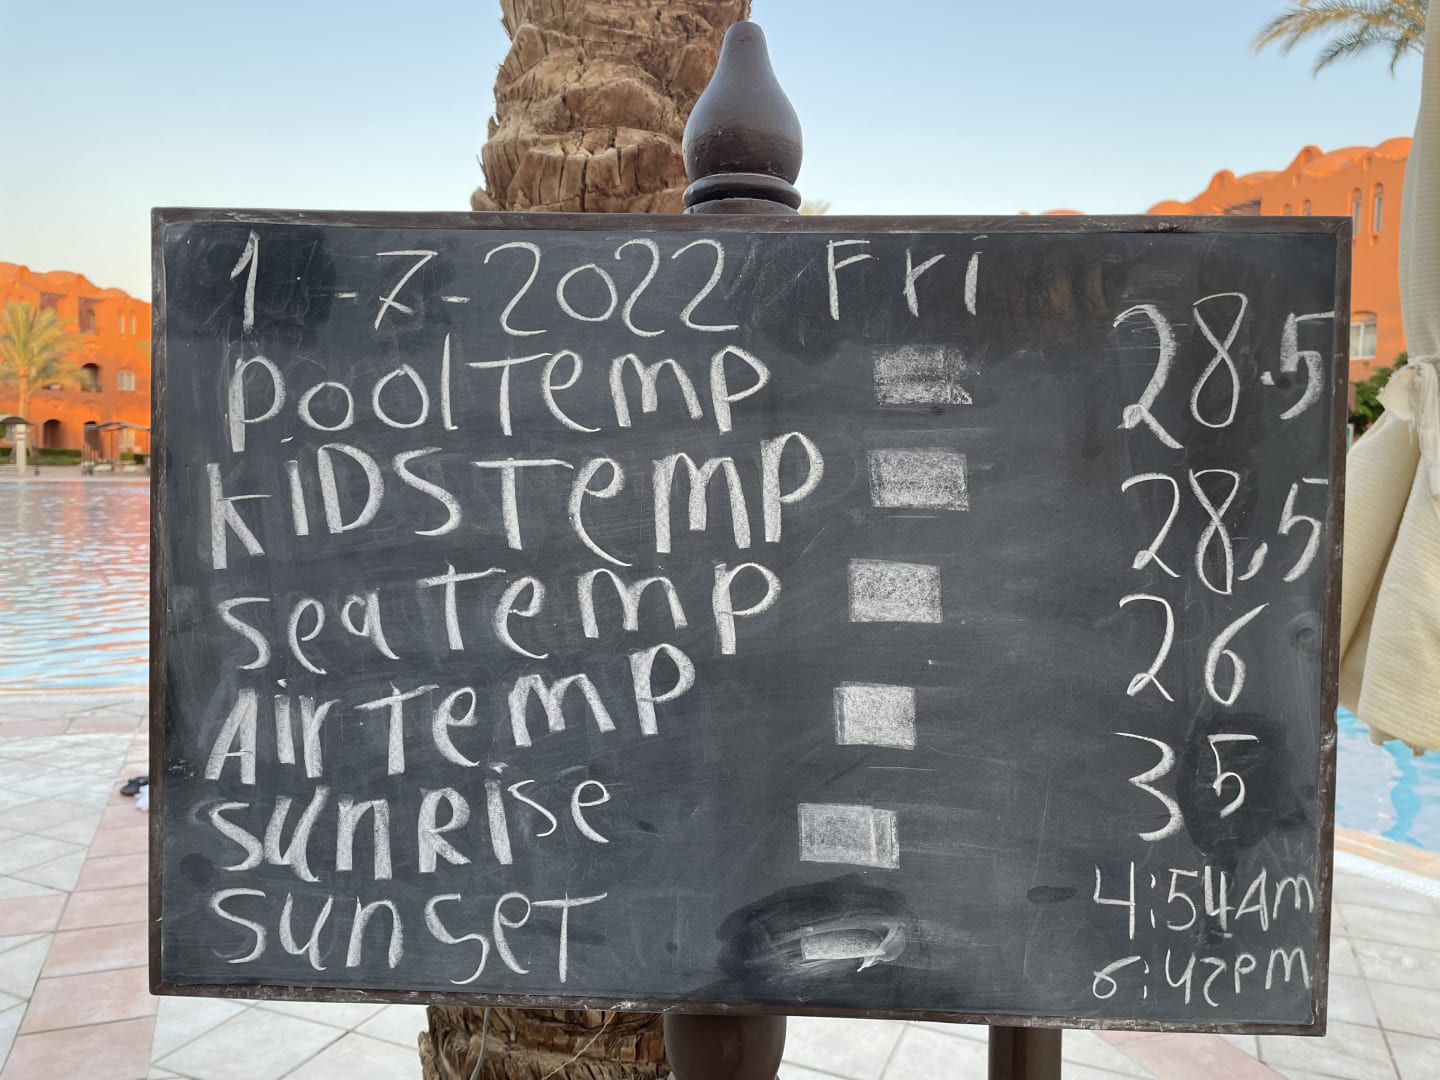 1-7-2022 Fri
Pool Temp 28.5
KiDS Temp 28,5
Sea Temp 26
Air Temp 35
SunRise 4:54AM
Sunset 6:42PM